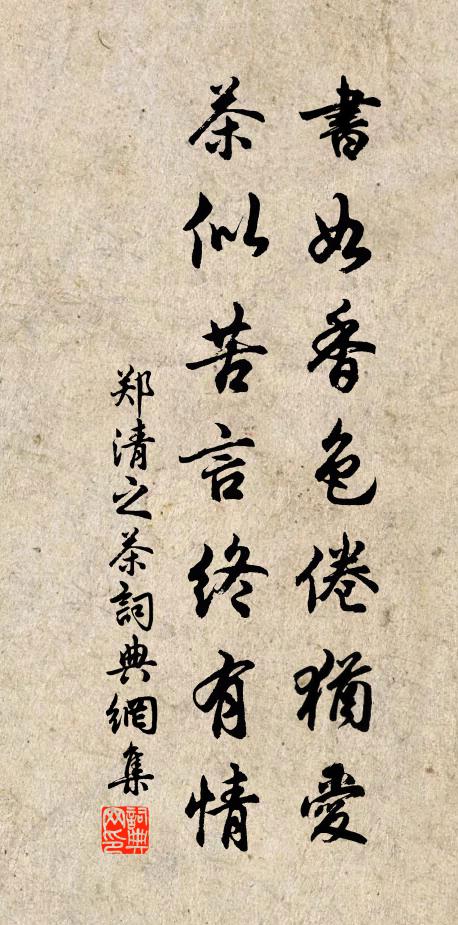 書如香色倦猶愛
茶似苦言終有情
郑清之茶詞典網集
詞典网印